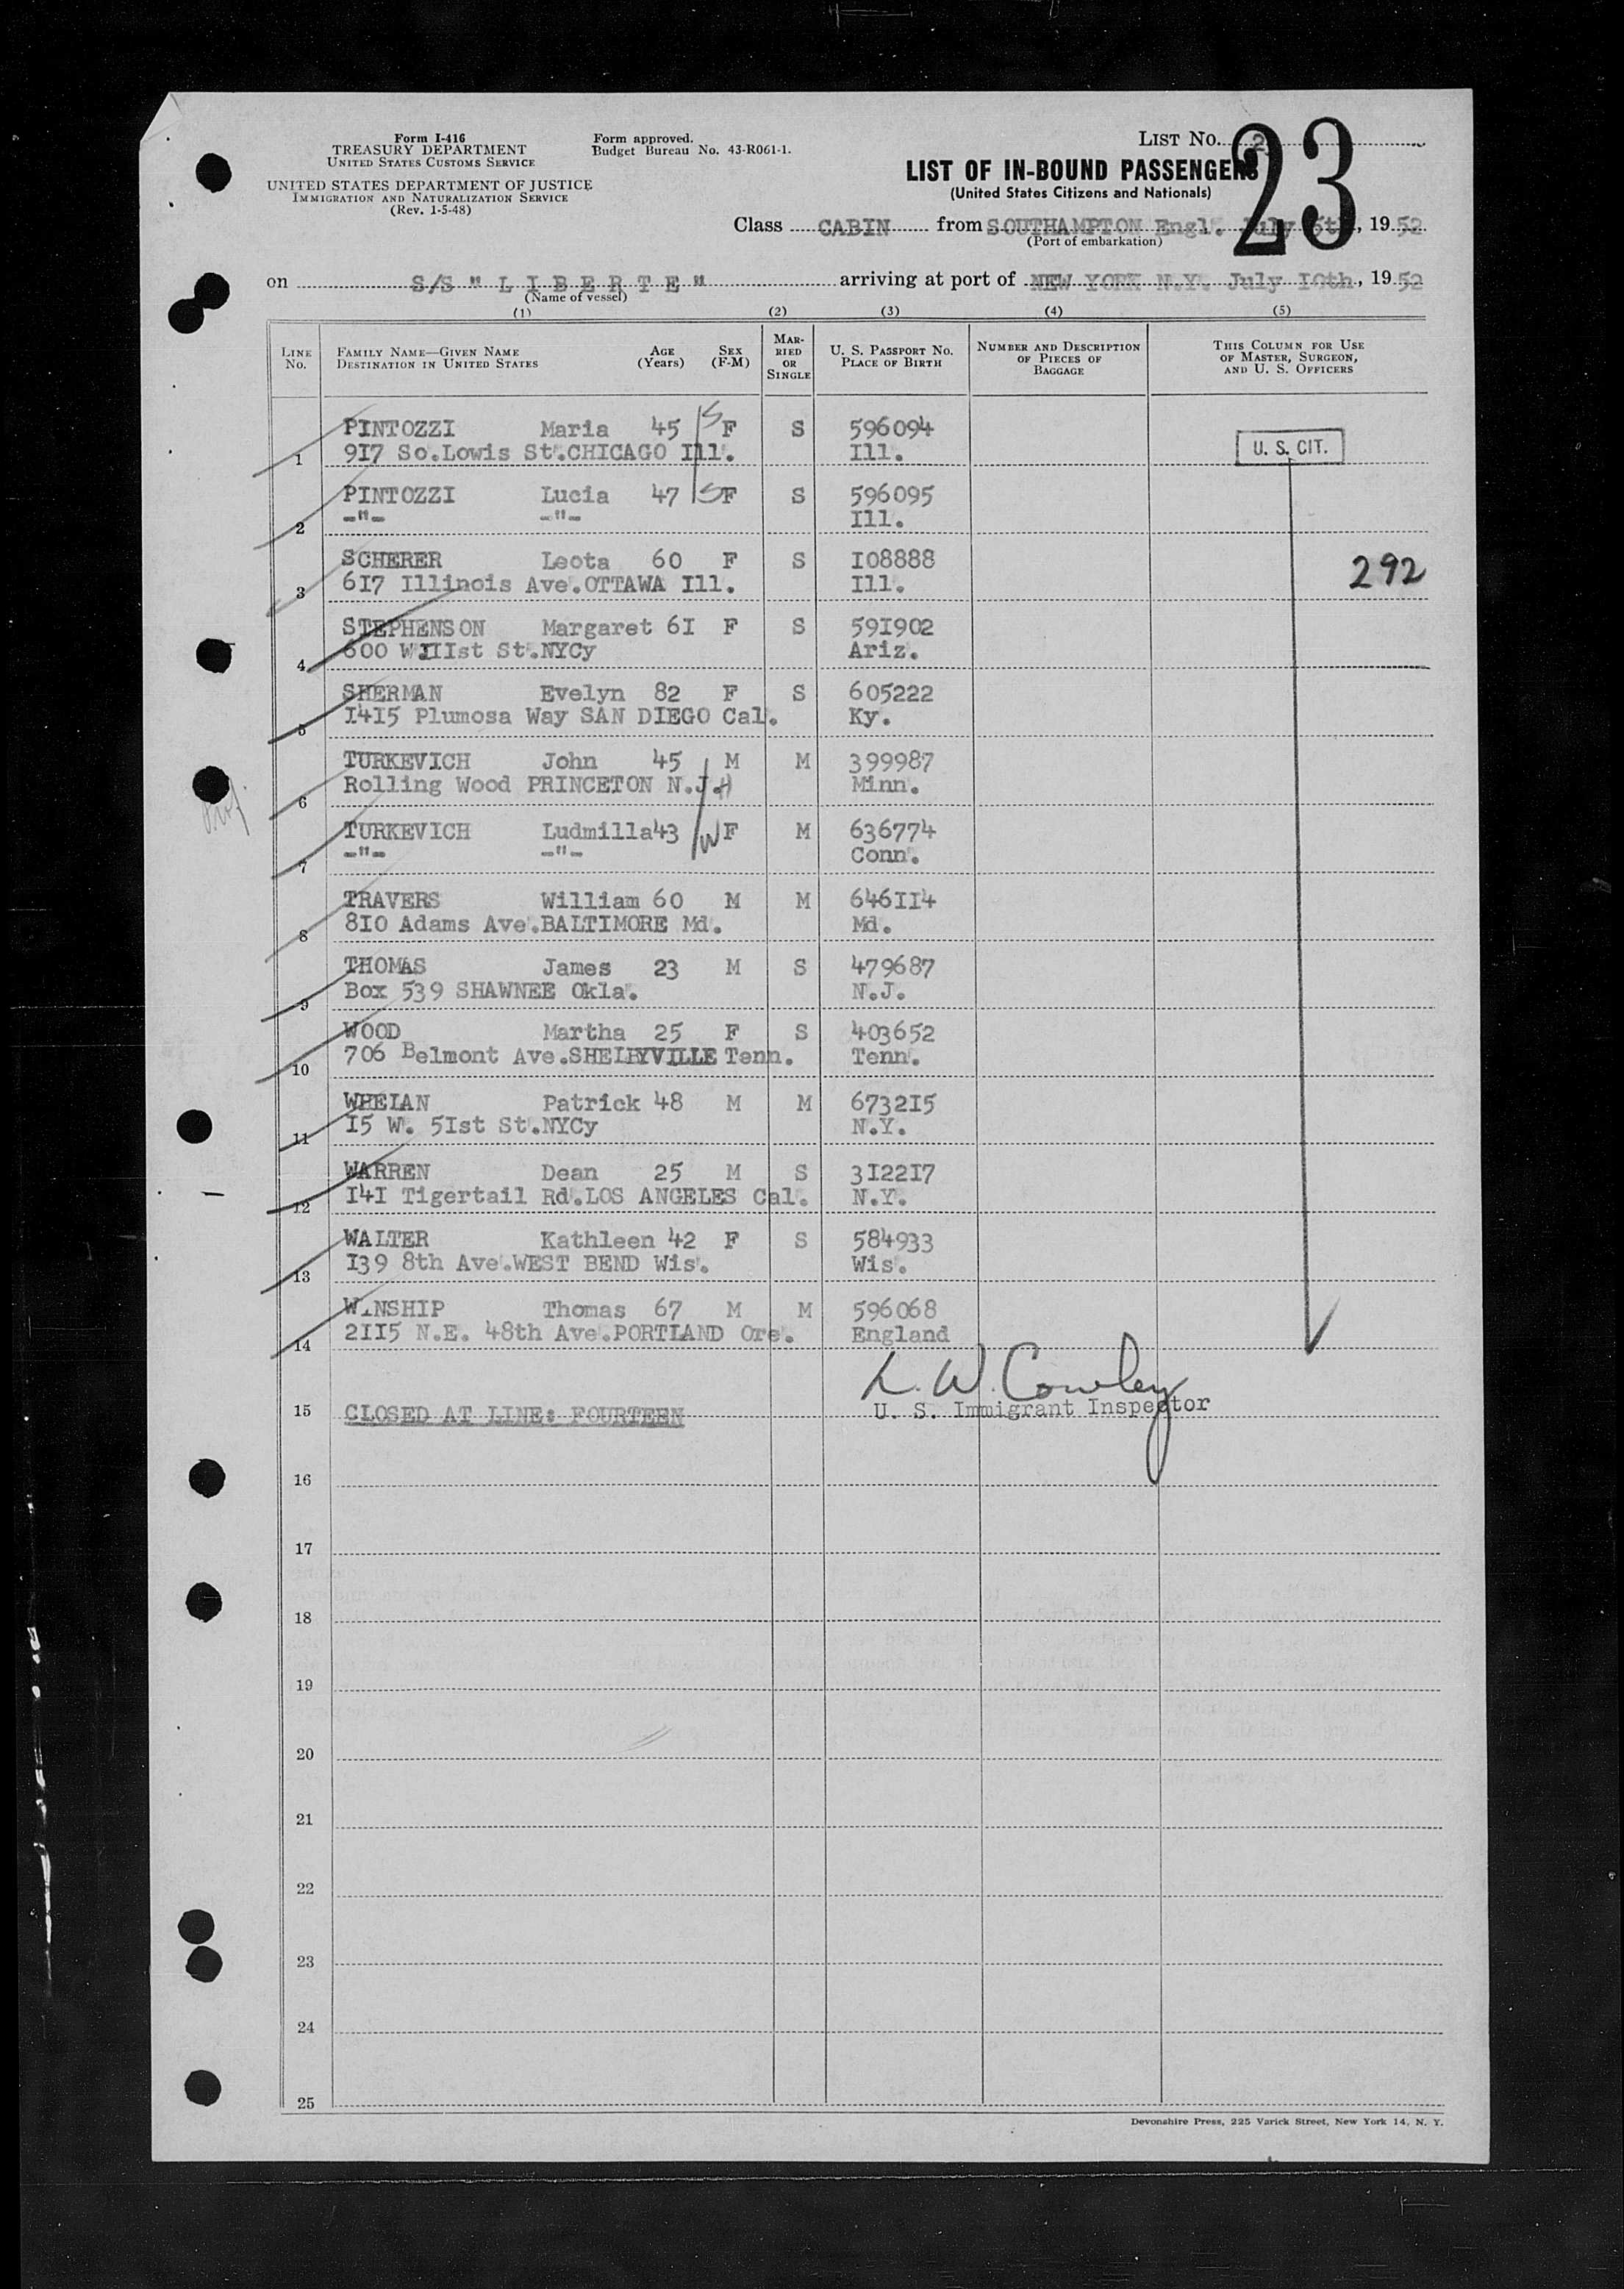 Form I-416
TREASURY DEPARTMENT
UNITED STATES CUSTOMS SERVICE
UNITED STATES DEPARTMENT OF JUSTICE
IMMIGRATION AND NATURALIZATION SERVICE
(Rev. 1-5-48)
Form approved.
Budget Bureau No. 43-R061-1.
LIST No. 2
23
LIST OF IN-BOUND PASSENGERS
(United States Citizens and Nationals)
Class CABIN from SOUTHAMPTON Engl. July 5th, 1952
(Port of embarkation)
on S/S " L I B E R T E " arriving at port of NEW YORK N.Y. July I0th, 1952
(Name of vessel)
(1) (2) (3) (4) (5)
LINE NO.
FAMILY NAME—GIVEN NAME
DESTINATION IN UNITED STATES
AGE (Years)
SEX (F-M)
MARRIED OR SINGLE
U. S. PASSPORT NO.
PLACE OF BIRTH
NUMBER AND DESCRIPTION OF PIECES OF BAGGAGE
THIS COLUMN FOR USE OF MASTER, SURGEON, AND U. S. OFFICERS
PINTOZZI Maria 45 S F S 596094
1 9I7 So.Lowis St.CHICAGO Ill. Ill. U. S. CIT.
PINTOZZI Lucia 47 S F S 596095
2 -"- -"- Ill.
SCHERER Leota 60 F S I08888 292
3 6I7 Illinois Ave.OTTAWA Ill. Ill.
STEPHENSON Margaret 6I F S 59I902
4 600 W.IIIst St.NYCy Ariz.
SHERMAN Evelyn 82 F S 605222
5 I4I5 Plumosa Way SAN DIEGO Cal. Ky.
TURKEVICH John 45 M M 399987
6 Rolling Wood PRINCETON N.J. H Minn.
Prof.
TURKEVICH Ludmilla43 W F M 636774
7 -"- -"- Conn.
TRAVERS William 60 M M 646II4
8 8I0 Adams Ave.BALTIMORE Md. Md.
THOMAS James 23 M S 479687
9 Box 539 SHAWNEE Okla. N.J.
WOOD Martha 25 F S 403652
10 706 Belmont Ave.SHELBYVILLE Tenn. Tenn.
WHELAN Patrick 48 M M 6732I5
11 I5 W. 5Ist St.NYCy N.Y.
WARREN Dean 25 M S 3I22I7
12 I4I Tigertail Rd.LOS ANGELES Cal. N.Y.
WALTER Kathleen 42 F S 584933
13 I39 8th Ave.WEST BEND Wis. Wis.
WINSHIP Thomas 67 M M 596068
14 2II5 N.E. 48th Ave.PORTLAND Ore. England
L. W. Cowley
15 CLOSED AT LINE: FOURTEEN U. S. Immigrant Inspector
16
17
18
19
20
21
22
23
24
25
Devonshire Press, 225 Varick Street, New York 14, N. Y.